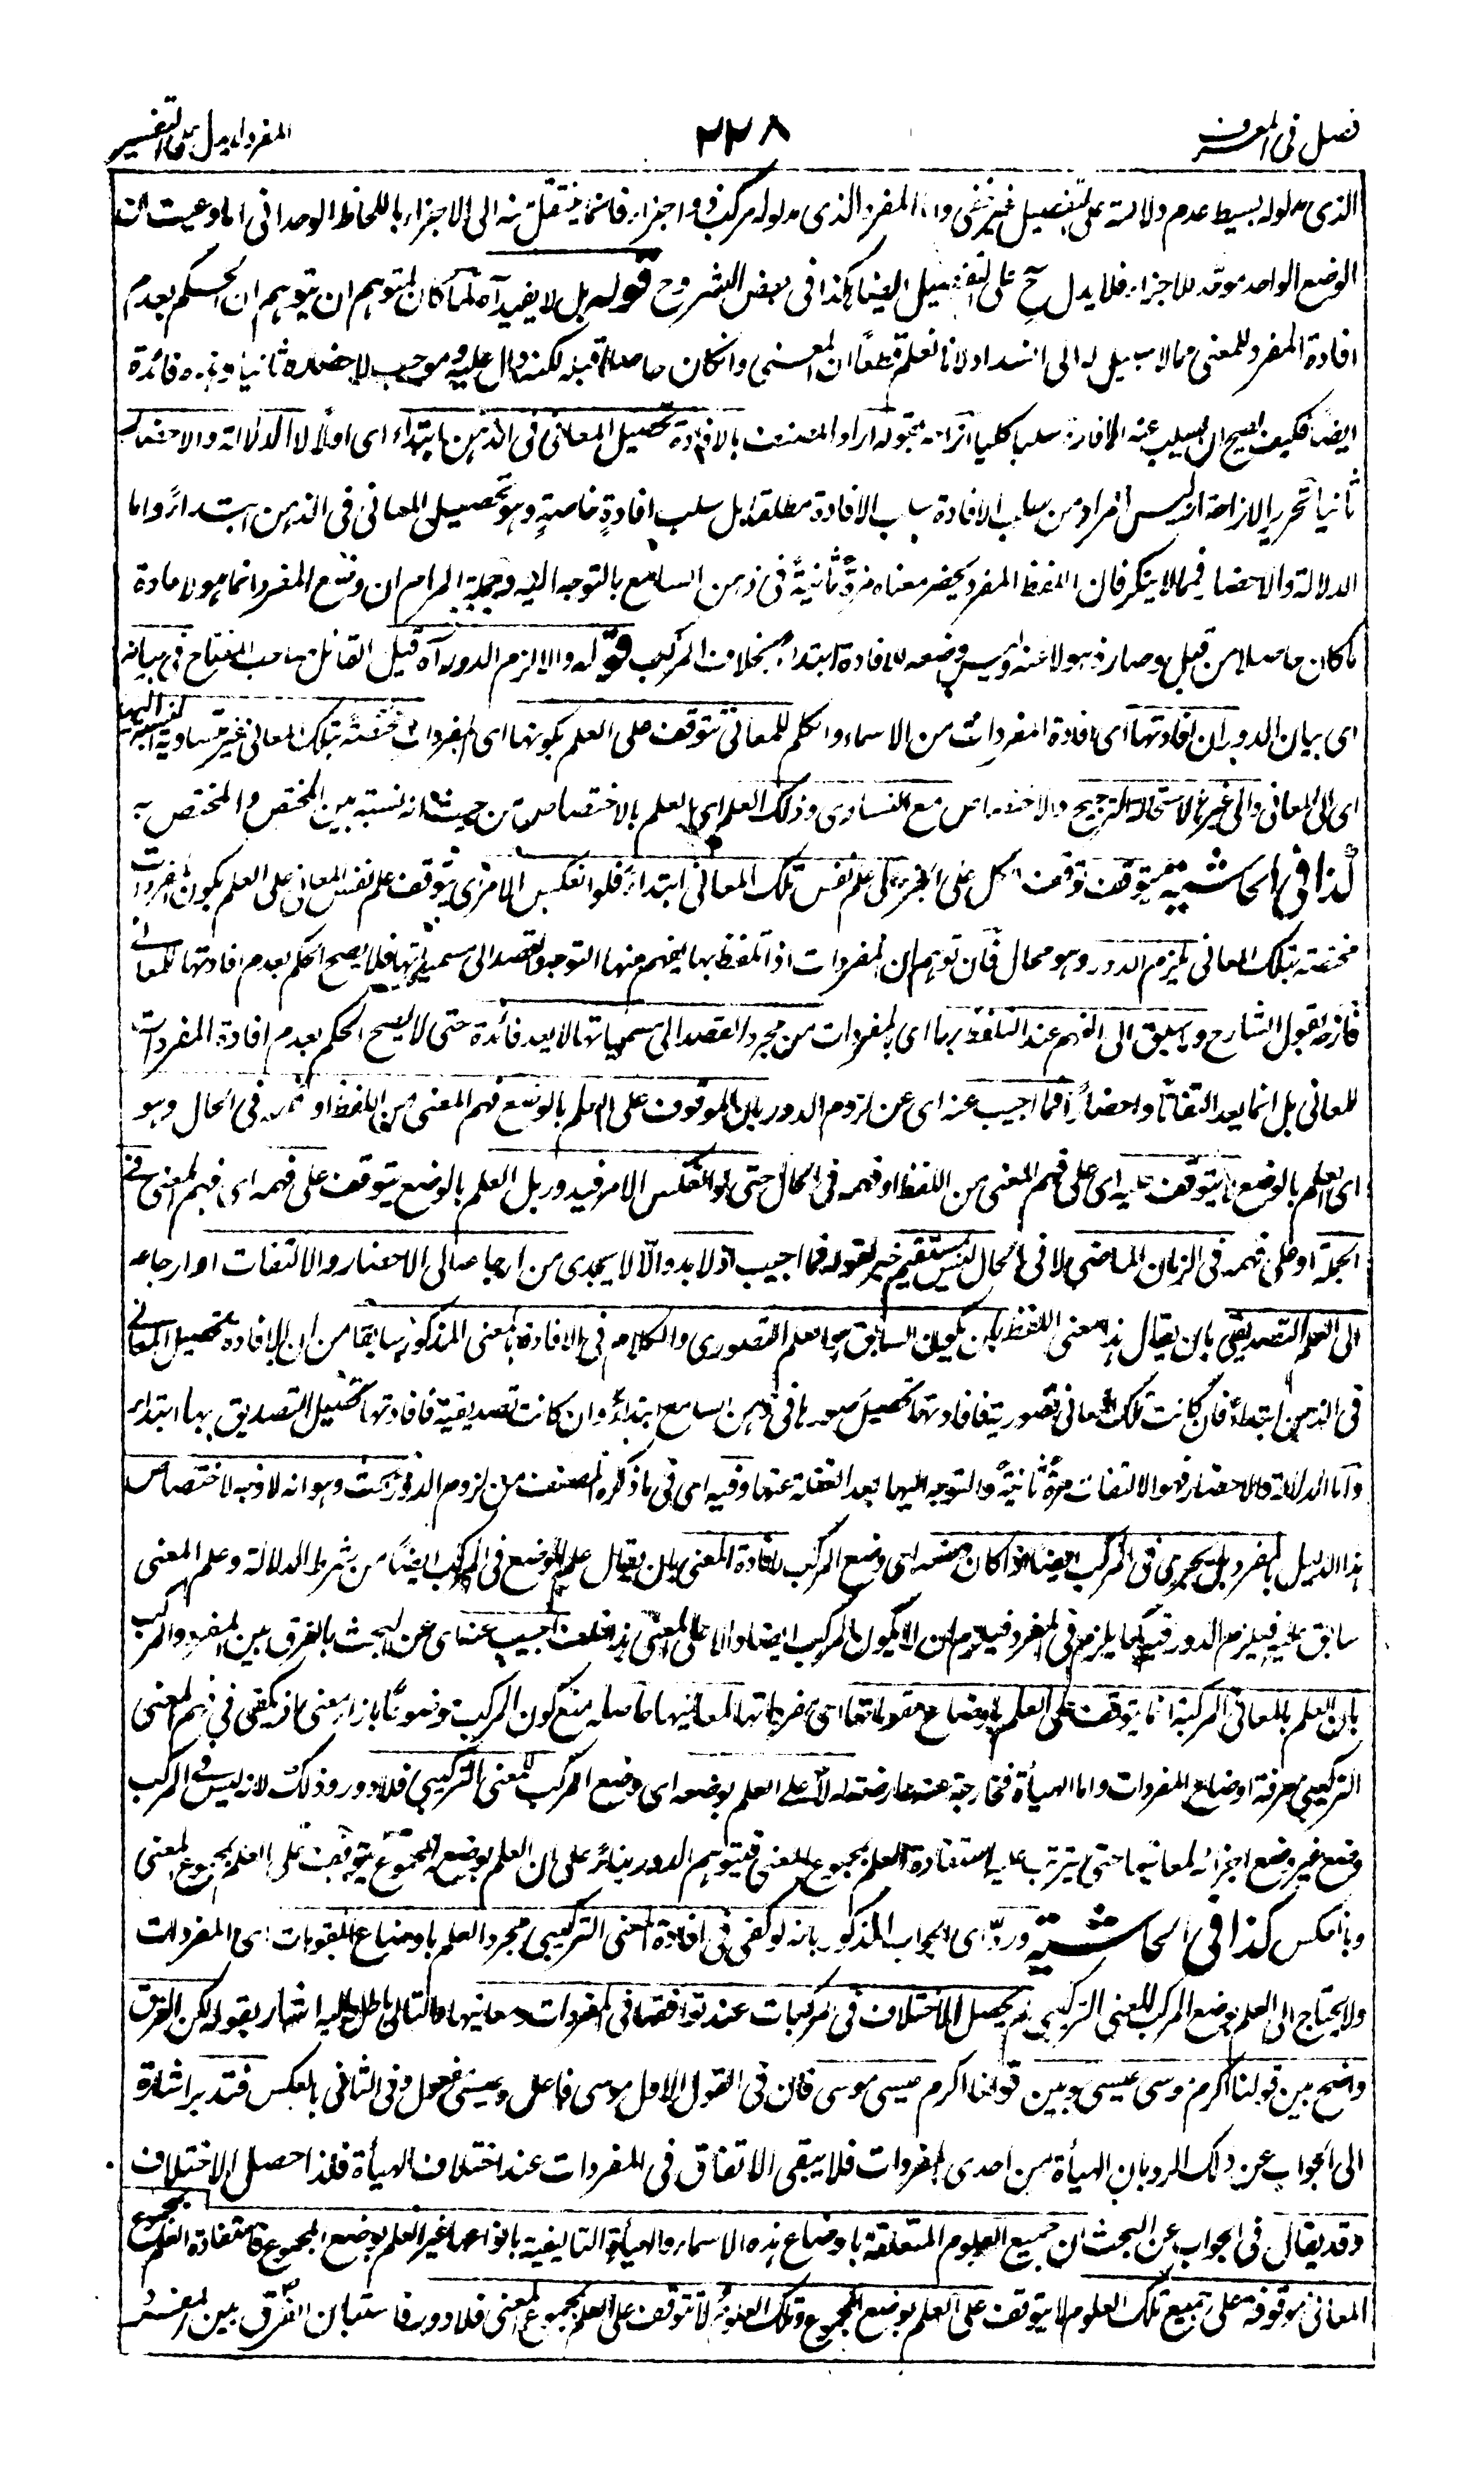 فصل فی المعرف
٢٢٨
المفرد لا یدل علی التفسیر
الذی مدلوله بسیط عدم دلالته علی التفصیل غیر خفی واما المفرد الذی مدلوله مرکب ذو اجزاء فانما ینتقل منه الی الاجزاء باللحاظ الوحدانی
الوضع الواحد موحد للاجزاء فلا یدل ح علی التفصیل ایضا کذا فی بعض الشروح قوله بل لا یفید آه لما کان لمتوهم ان یتوهم ان الحکم بعدم
افادة المفرد للمعنی مما لا سبیل له الی السداد لانا نعلم قطعًا ان المعنی وانکان حاصلا قبله لکنه دال علیه وموجب لاحضاره ثانیا وهذه فائدة
ایضا فکیف یصح ان یسلب عنه الافادة سلبا کلیا ازاحه بقوله اراد المصنف بالافادة تحصیل المعانی فی الذهن ابتداء ای اولًا لا الدلالة والاحضار
ثانیا تحریر الازاحة انه لیس المراد من سلب الافادة سلب الافادة مطلقا بل سلب افادةٍ خاصةٍ وهو تحصیل المعانی فی الذهن ابتداءً واما
الدلالة والاحضار فمما لا ینکر فان اللفظ المفرد یحضر معناه مرةً ثانیةً فی ذهن السامع بالتوجه الیه وجملة المرام ان وضع المفرد انما هو لاعادة
ما کان حاصلا من قبل وصار ذهولا عنه ولیس وضعه للافادة ابتداء بخلاف المرکب قوله والا لزم الدور آه قیل القائل صاحب المفتاح فی بیانه
ای بیان الدور ان افادتها ای افادة المفردات من الاسماء والکلم للمعانی تتوقف علی العلم بکونها ای المفردات مختصة بتلک المعانی غیر متساویة النسبة الیها
ای الی المعانی والی غیرها لاستحالة الترجیح والاختصاص مع التساوی وذلک العلم ای العلم بالاختصاص من حیث انه نسبة بین المختص والمختص به
کذا فی الحاشیة یتوقف توقف الکل علی الجزء علی علم نفس تلک المعانی ابتداءً فلو انعکس الامر ای یتوقف علم نفس المعانی علی العلم بکون المفردات
مختصة بتلک المعانی یلزم الدور وهو محال فان توهم ان المفردات اذا تلفظ بها یفهم منها التوجه والقصد الی مسمیاتها فلا یصح الحکم بعدم افادتها للمعانی
فازاحه بقول الشارح وما یسبق الی الفهم عند التلفظ بها ای بالمفردات من مجرد القصد الی مسمیاتها لا یعد فائدة حتی لا یصح الحکم بعدم افادة المفردات
للمعانی بل انما یعد التفاتًا واحضارًا فما اجیب عنه ای عن لزوم الدور بان الموقوف علی العلم بالوضع فهم المعنی من اللفظ او فهمه فی الحال وهو
ای العلم بالوضع لا یتوقف علیه ای علی فهم المعنی من اللفظ او فهمه فی الحال حتی لو انعکس الامر فیدور بل العلم بالوضع یتوقف علی فهمه ای فهم المعنی فی
الجملة او علی فهمه فی الزمان الماضی لا فی الحال لیس بمستقیم خبر لقوله فما اجیب اذ لا بد والا لا یجدی من ارجاعه الی الاحضار والالتفات او ارجاعه
الی العلم التصدیقی بان یقال هذا معنی اللفظ بان یکون السابق هو العلم التصوری والکلام فی الافادة بالمعنی المذکور سابقا من ان الافادة تحصیل المعانی
فی الذهن ابتداءً فان کانت تلک المعانی تصوریة فافادتها تحصیل صورها فی ذهن السامع ابتداءً وان کانت تصدیقیة فافادتها تحصیل التصدیق بها ابتداء
واما الدلالة والاحضار فهو الالتفات مرةً ثانیةً والتوجه الیها بعد الغفلة عنها وفیه ای فی ما ذکره المصنف من لزوم الدور بحث وهو انه لا وجه لاختصاص
هذا الدلیل بالمفرد بل یجری فی المرکب ایضا اذا کان وضعه ای وضع المرکب لافادة المعنی بان یقال علم الوضع فی المرکب ایضًا من شرط الدلالة وعلم المعنی
سابق علیه فیلزم الدور فیه کما یلزم فی المفرد فیلزم ان لا یکون المرکب ایضا دالا علی المعنی هذا خلف اجیب عنه ای عن البحث بالفرق بین المفرد والمرکب
بان العلم بالمعانی المرکبة انما یتوقف علی العلم باوضاع مقوماتها ای مفرداتها لمعانیها حاصله منع کون المرکب موضوعًا بازاء معنی اذ یکفی فی فهم المعنی
الترکیبی معرفة اوضاع المفردات واما الهیأة فخارجة عنه عارضة له لا علی العلم بوضعه ای وضع المرکب للمعنی الترکیبی فلا دور وذلک لانه لیس فی المرکب
وضع غیر وضع اجزائه لمعانیها حتی یترتب علیه استفادة العلم بمجموع المعنی فیتوهم الدور بناءً علی ان العلم بوضع المجموع یتوقف علی العلم بمجموع المعنی
وبالعکس کذا فی الحاشیة وردّ ای الجواب المذکور بانه لو کفی فی افادة المعنی الترکیبی مجرد العلم باوضاع المقومات ای المفردات
ولا یحتاج الی العلم بوضع المرکب للمعنی الترکیبی لم یحصل الاختلاف فی مرکبات عند توافقها فی المفردات ومعانیها والتالی باطل والیه اشار بقوله لکن الفرق
واضح بین قولنا اکرم موسی عیسی وبین قولنا اکرم عیسی موسی فان فی القول الاول موسی فاعل وعیسی مفعول وفی الثانی بالعکس فتدبر اشارة
الی الجواب عن ذلک الرد بان الهیأة من احدی المفردات فلا یبقی الاتفاق فی المفردات عند اختلاف الهیأة فلذا حصل الاختلاف
وقد یقال فی الجواب عن البحث ان جمیع العلوم المتعلقة باوضاع هذه الاسماء والهیأة التالیفیة بانواعها غیر العلم بوضع المجموع فاستفادة العلم بمجموع
المعانی موقوفة علی جمیع تلک العلوم لا یتوقف علی العلم بوضع المجموع وتلک العلوم لا تتوقف علی العلم بمجموع المعنی فلا دور فاستبان الفرق بین المفرد